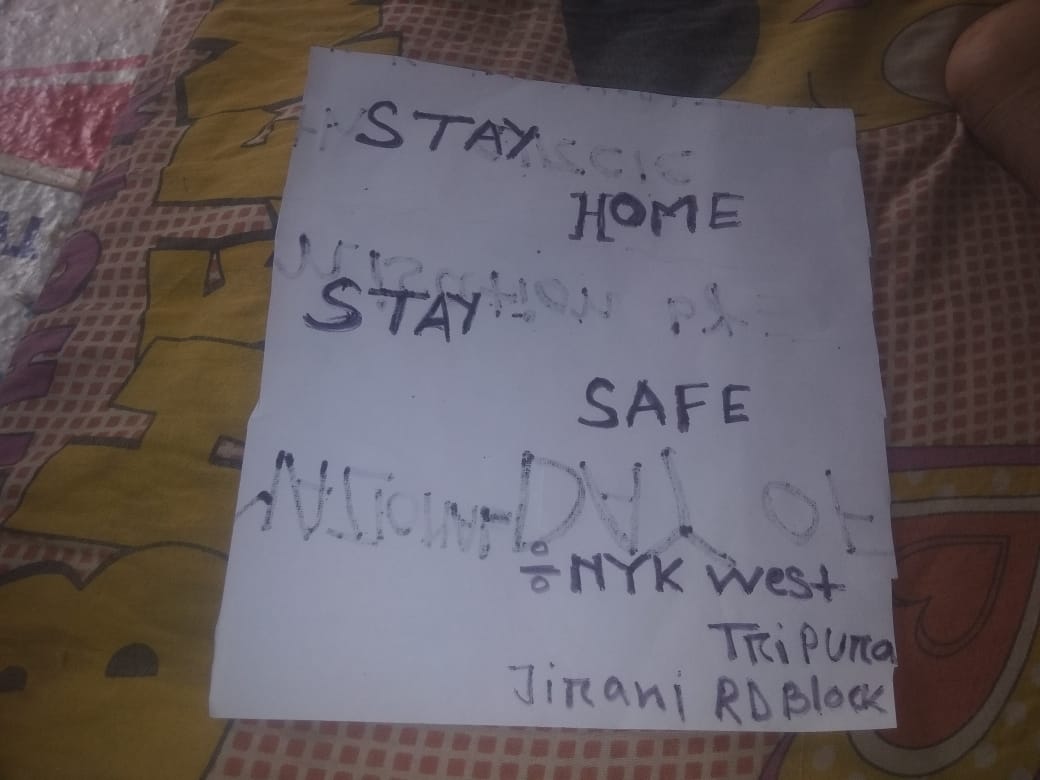 STAY
HOME
STAY
SAFE
÷ NYK West
Tripura
Jirani RD Block